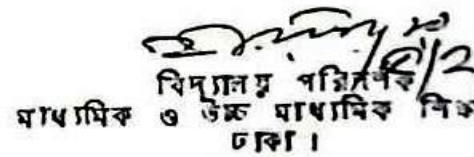 বিদ্যালয় পরিদর্শক
মাধ্যমিক ও উচ্চ মাধ্যমিক
ঢাকা।